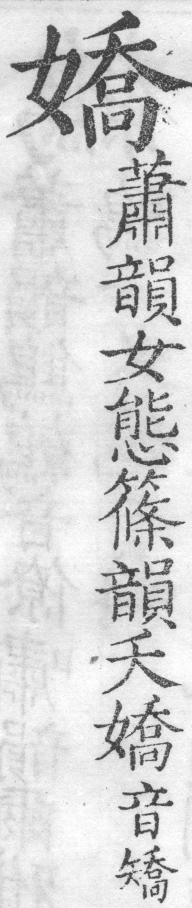 嬌蕭韻女態篠韻夭嬌音矯